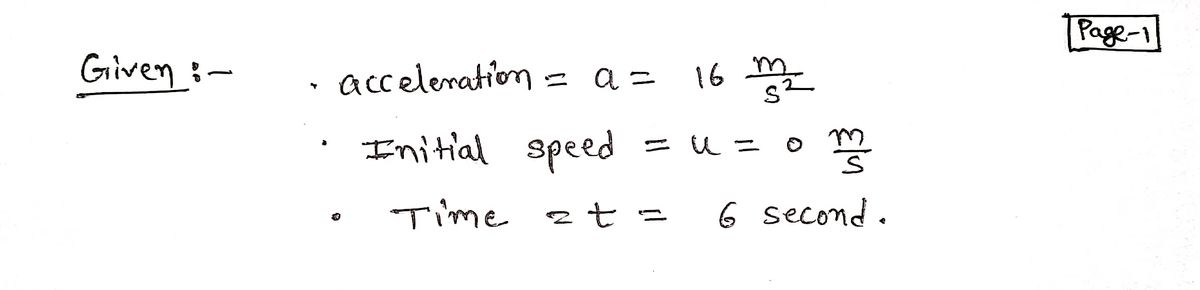 Page-1
Given :- • acceleration = a = 16 m/s²
• Initial speed = u = 0 m/s
• Time = t = 6 second.